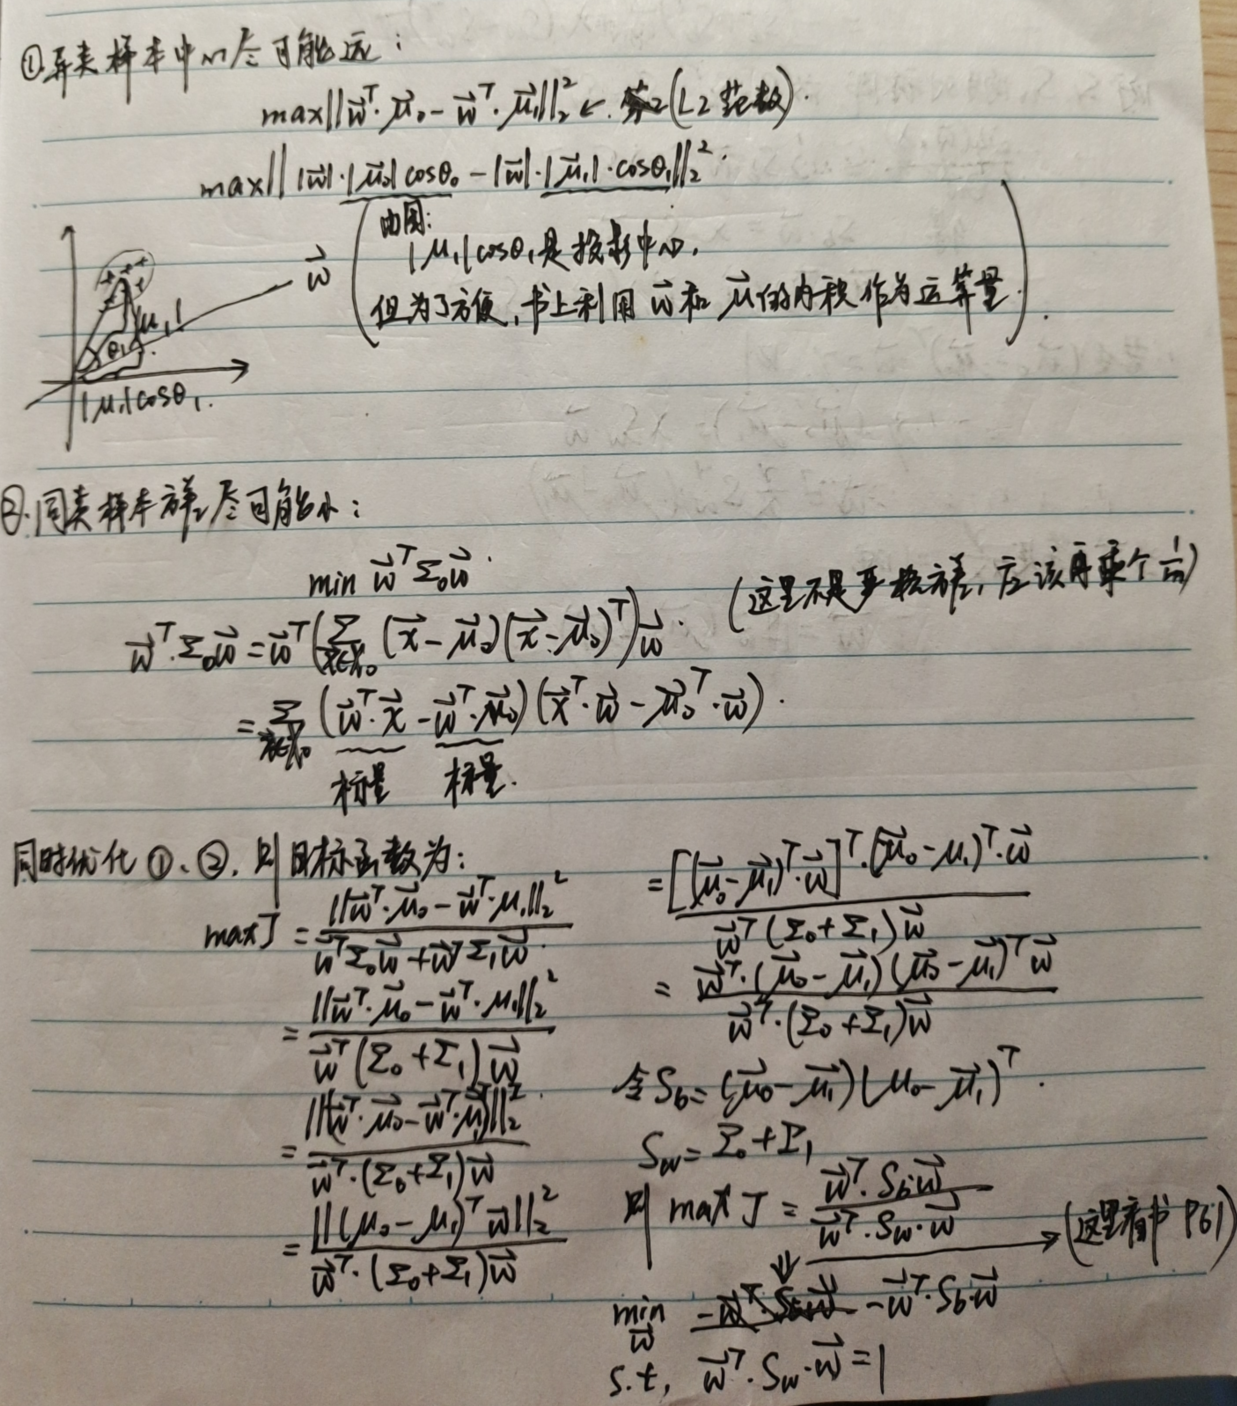 ①异类样本中心尽可能远：
max||w⃗ᵀ·μ⃗₀ - w⃗ᵀ·μ⃗₁||₂² ← (L2范数).
max|| |w⃗|·|μ⃗₀|cosθ₀ - |w⃗|·|μ⃗₁|·cosθ₁||₂².
w⃗
μ₁
θ₁
|μ₁|cosθ₁.
(由图:
|μ₁|cosθ₁是投影中心,
但为了方便,书上利用w⃗和μ⃗的内积作为运算量.)
②.同类样本方差尽可能小：
min w⃗ᵀΣ₀w⃗.
(这里不是严格方差,应该再乘个1/m)
w⃗ᵀ·Σ₀w⃗ = w⃗ᵀ(Σ_{x∈X₀}(x⃗-μ⃗₀)(x⃗-μ⃗₀)ᵀ)w⃗.
= Σ_{x∈X₀}(w⃗ᵀ·x⃗ - w⃗ᵀ·μ⃗₀)(x⃗ᵀ·w⃗ - μ⃗₀ᵀ·w⃗).
标量 标量.
同时优化①、②,则目标函数为：
max J = ||w⃗ᵀ·μ⃗₀ - w⃗ᵀ·μ₁||₂² / w⃗ᵀΣ₀w⃗ + w⃗ᵀΣ₁w⃗.
= ||w⃗ᵀ·μ⃗₀ - w⃗ᵀ·μ₁||₂² / w⃗ᵀ(Σ₀+Σ₁)w⃗
= ||(w⃗ᵀ·μ⃗₀ - w⃗ᵀ·μ⃗₁)ᵀ||₂² / w⃗ᵀ·(Σ₀+Σ₁)w⃗
= ||(μ₀-μ₁)ᵀw⃗||₂² / w⃗ᵀ·(Σ₀+Σ₁)w⃗
= [(μ⃗₀-μ⃗₁)ᵀ·w⃗]ᵀ·(μ⃗₀-μ₁)ᵀ·w⃗ / w⃗ᵀ(Σ₀+Σ₁)w⃗
= w⃗ᵀ·(μ⃗₀-μ⃗₁)(μ⃗₀-μ⃗₁)ᵀw⃗ / w⃗ᵀ·(Σ₀+Σ₁)w⃗
令S_b = (μ⃗₀-μ⃗₁)(μ₀-μ⃗₁)ᵀ.
S_w = Σ₀+Σ₁
则 max J = w⃗ᵀ·S_b·w⃗ / w⃗ᵀ·S_w·w⃗
→(这里看书P61)
⇓
min_w⃗ -w⃗ᵀ·S_b·w⃗
s.t, w⃗ᵀ·S_w·w⃗ = 1